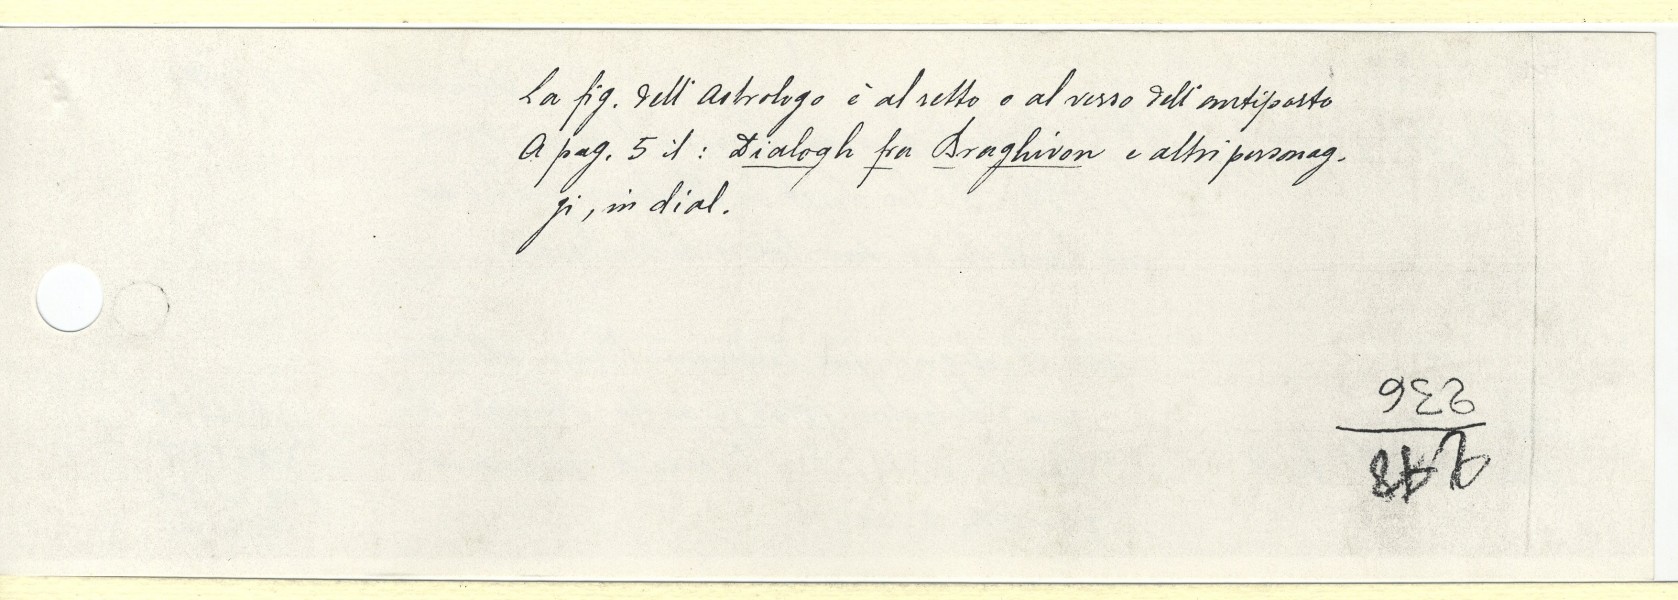 La fig. dell' Astrologo è al retto e al verso dell' antiposto
A pag. 5 il : Dialogh fra Braghiron e altri personag-
gi, in dial.
236
278